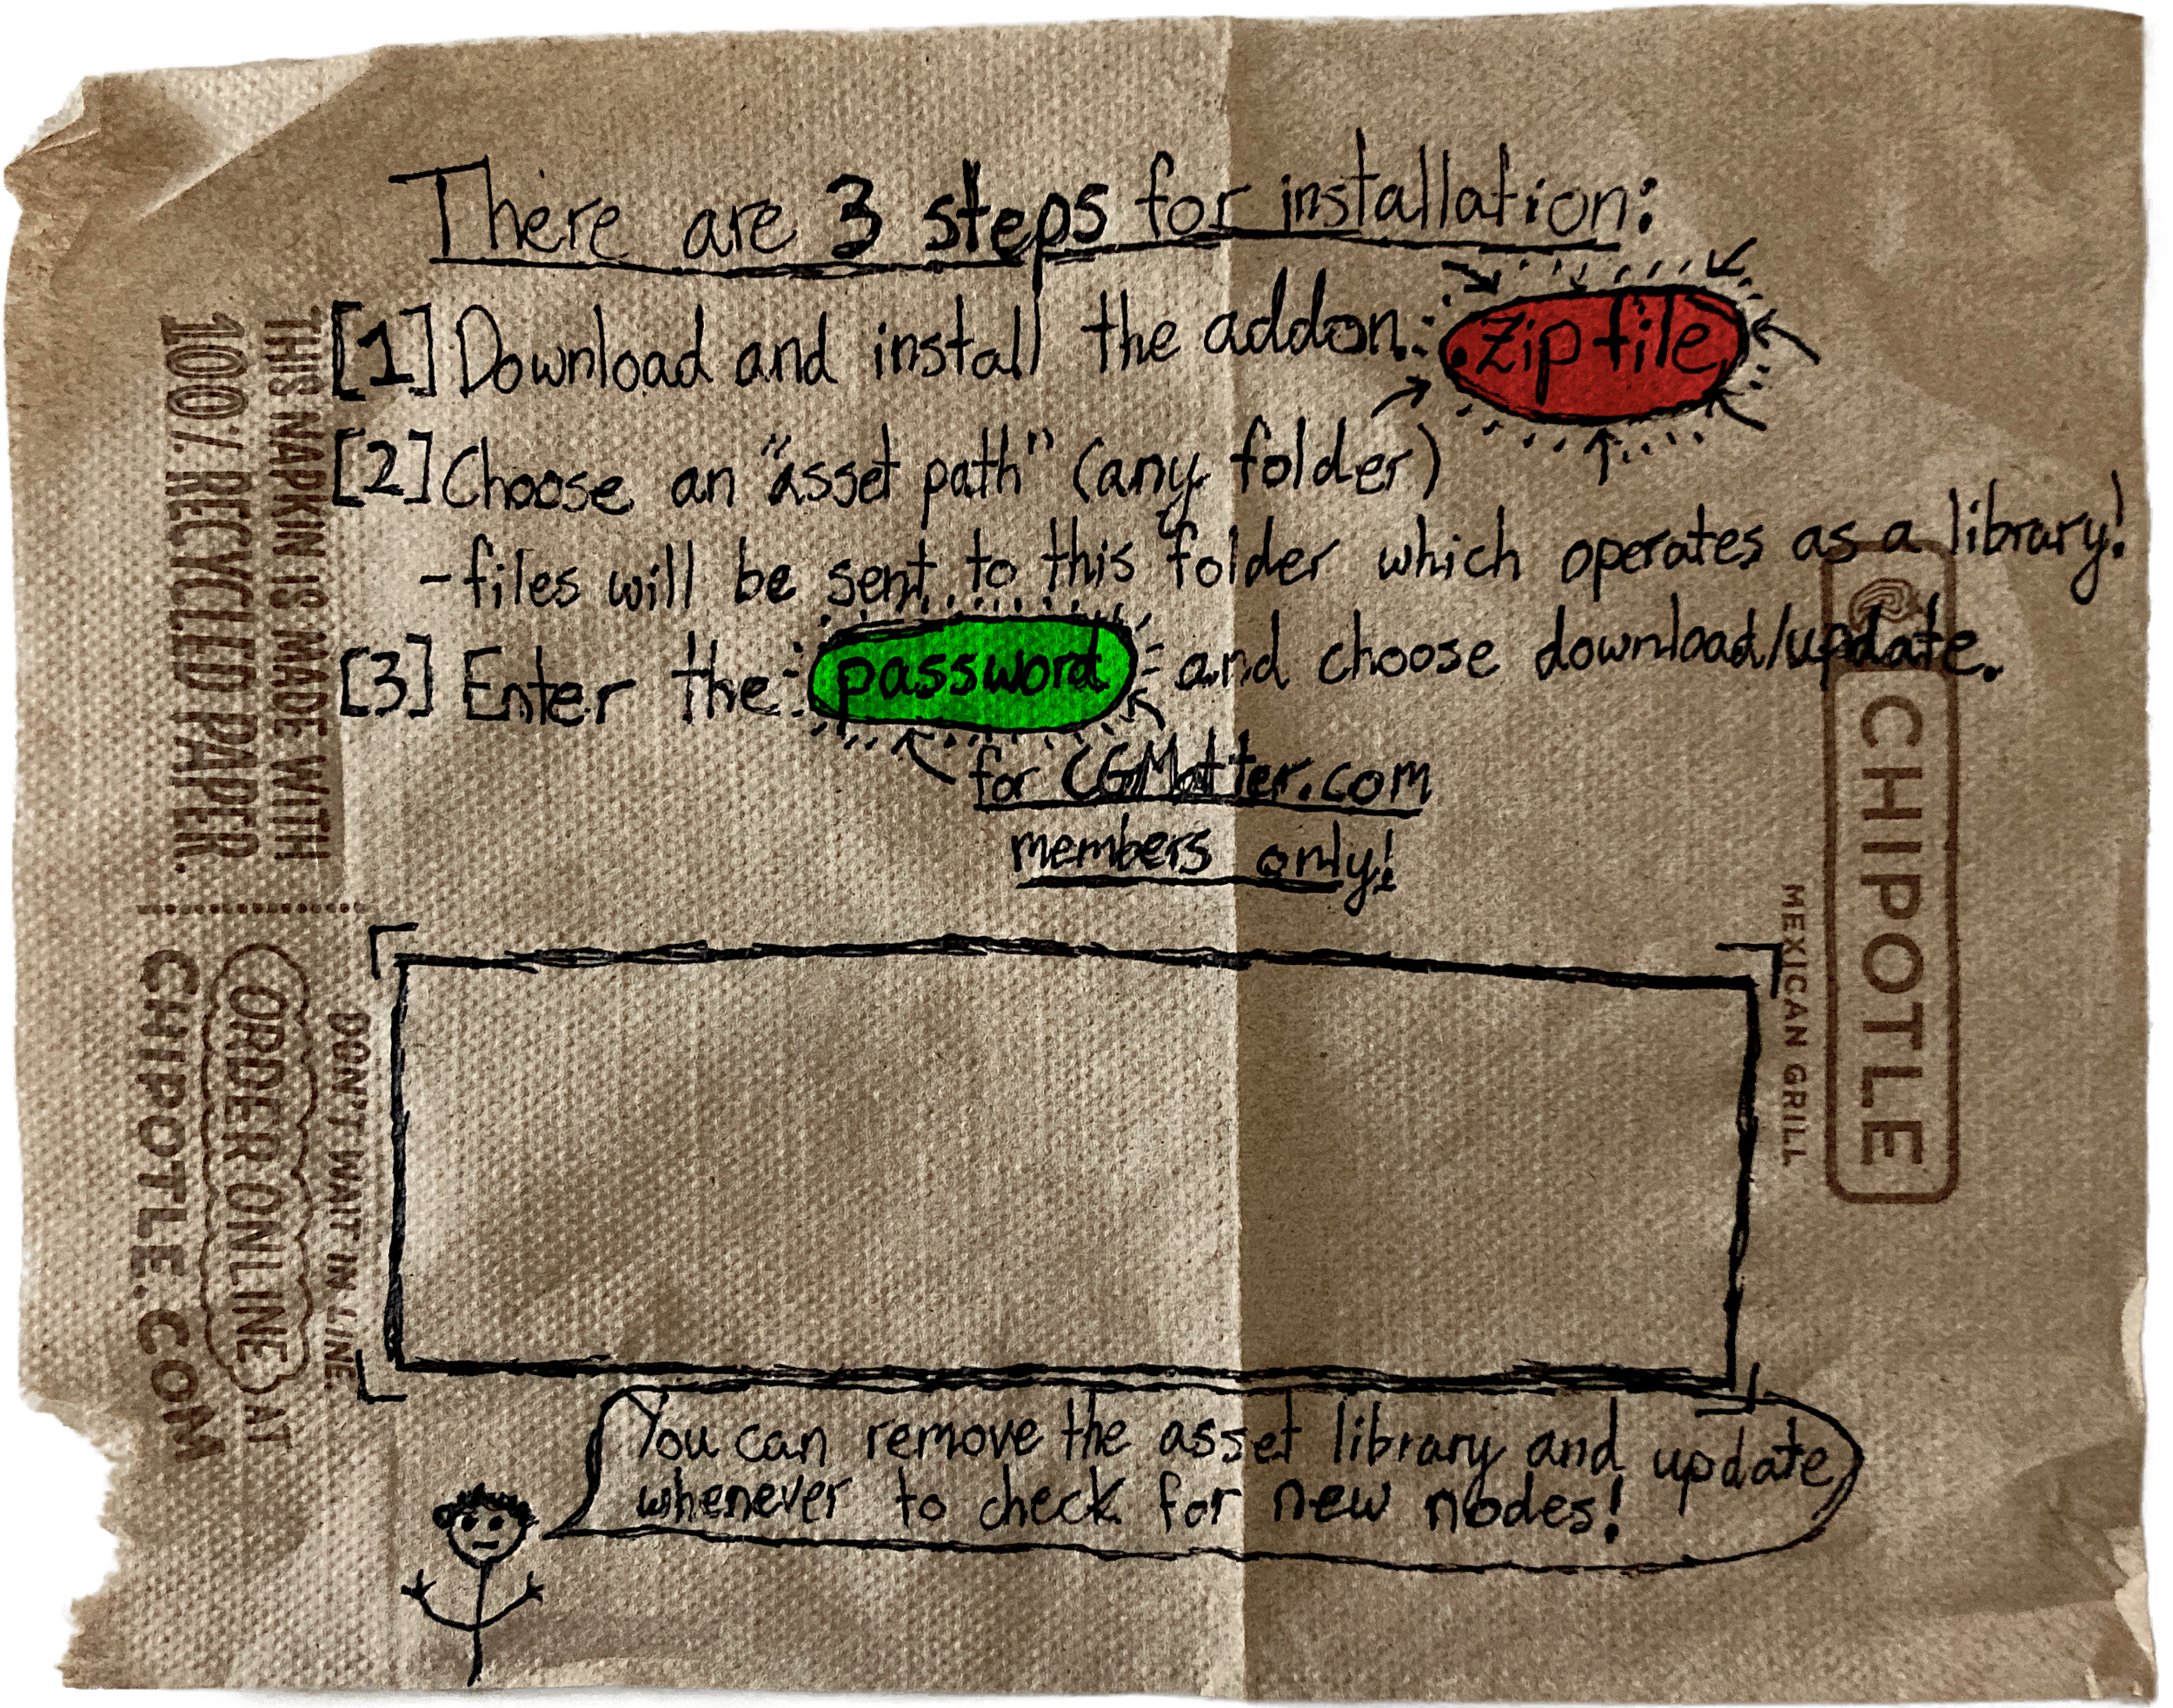 There are 3 steps for installation:
[1] Download and install the addon: zip file
[2] Choose an "asset path" (any folder)
-files will be sent to this folder which operates as a library!
[3] Enter the password and choose download/update.
for CGMatter.com
members only!
You can remove the asset library and update
whenever to check for new nodes!
THIS NAPKIN IS MADE WITH
100% RECYCLED PAPER.
DON'T WAIT IN LINE.
ORDER ONLINE AT
CHIPOTLE.COM
CHIPOTLE
MEXICAN GRILL